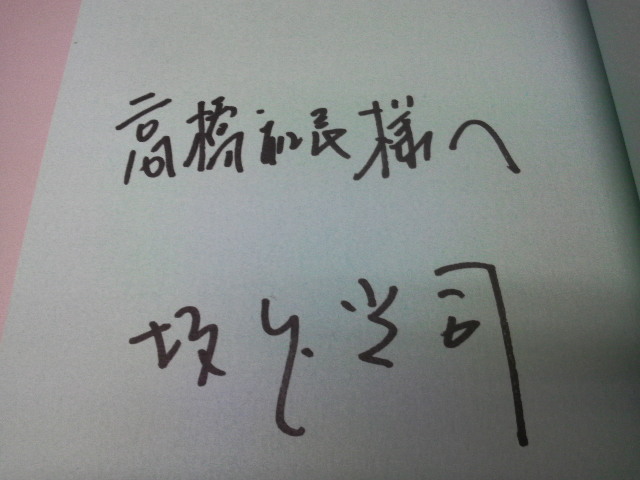 高橋社長様へ
坂本光司